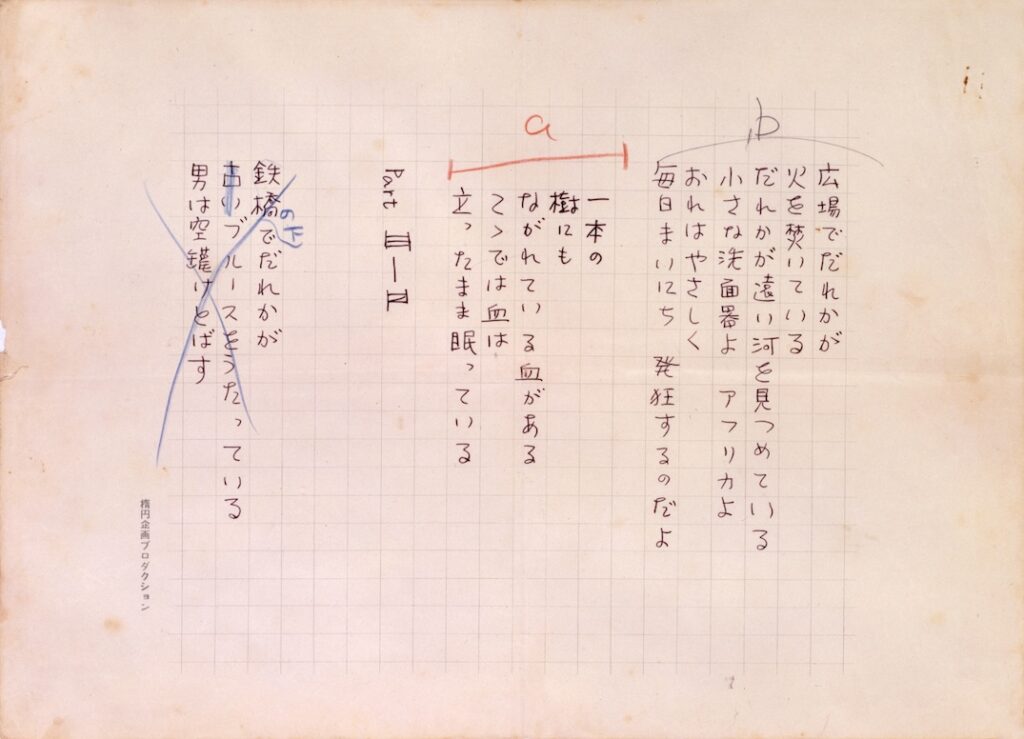 b
広場でだれかが
火を焚いている
だれかが遠い河を見つめている
小さな洗面器よ　アフリカよ
おれはやさしく
毎日まいにち　発狂するのだよ
a
一本の
樹にも
ながれている血がある
そこでは血は
立ったまま眠っている
Part
鉄橋の下でだれかが
古いブルースをうたっている
男は空罐けとばす
楕円企画プロダクション